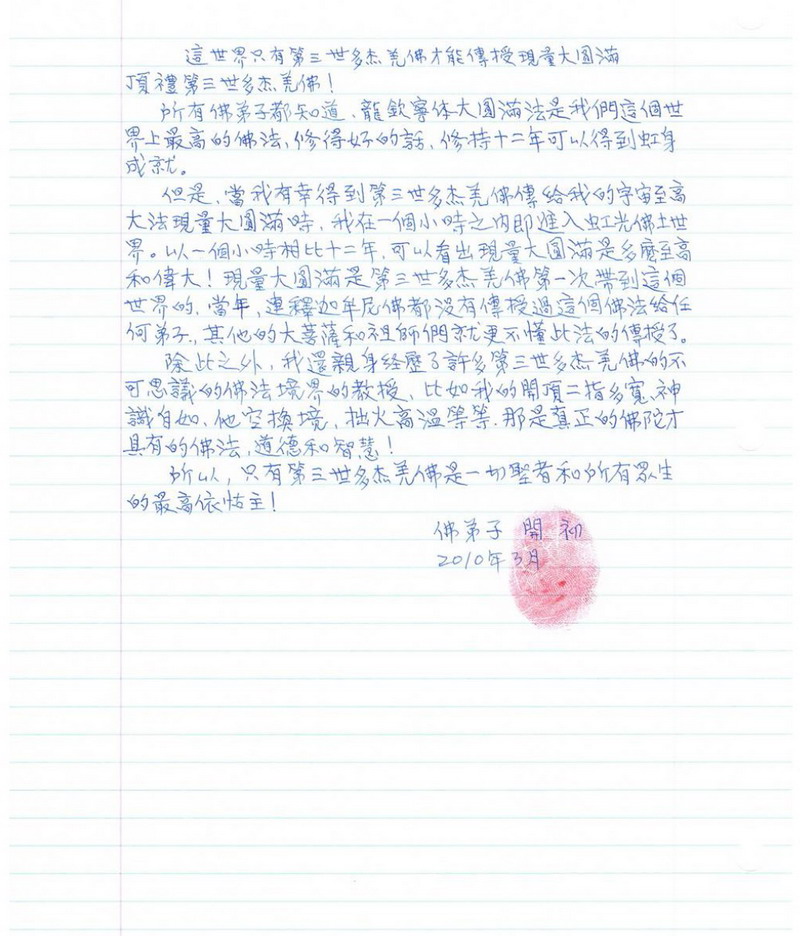 這世界只有第三世多杰羌佛才能傳授現量大圓滿
頂禮第三世多杰羌佛！
所有佛弟子都知道、龍欽寧体大圓滿法是我們這個世
界上最高的佛法，修得好的話，修持十二年可以得到虹身
成就。
但是、當我有幸得到第三世多杰羌佛傳給我的宇宙至高
大法現量大圓滿時，我在一個小時之內即進入虹光佛土世
界。以一個小時相比十二年，可以看出現量大圓滿是多麼至高
和偉大！現量大圓滿是第三世多杰羌佛第一次帶到這個
世界的，當年，連釋迦牟尼佛都沒有傳授過這個佛法給任
何弟子，其他的大菩薩和祖師們就更不懂此法的傳授了。
除此之外，我還親身経歷了許多第三世多杰羌佛的不
可思議的佛法境界的教授，比如我的開頂二指多寬、神
識自如、他空換境、拙火高溫等等．那是真正的佛陀才
具有的佛法，道德和智慧！
所以，只有第三世多杰羌佛是一切聖者和所有眾生
的最高依怙主！
佛弟子 開初
2010年3月